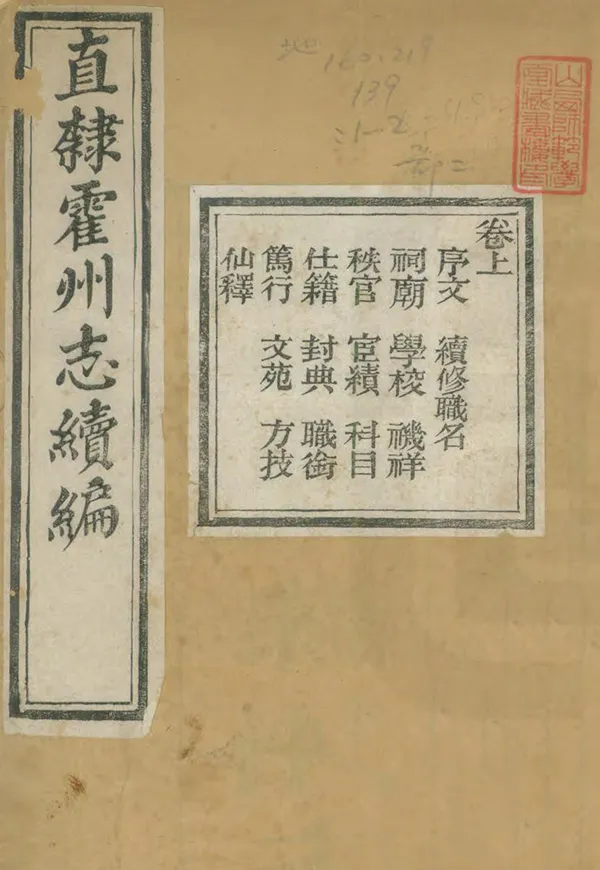 直隸霍州志續編
卷上
序文 續修職名
祠廟 學校 禨祥
秩官 宦績 科目
仕籍 封典 職銜
篤行 文苑 方技
仙釋
地
160.219
139
:1-2